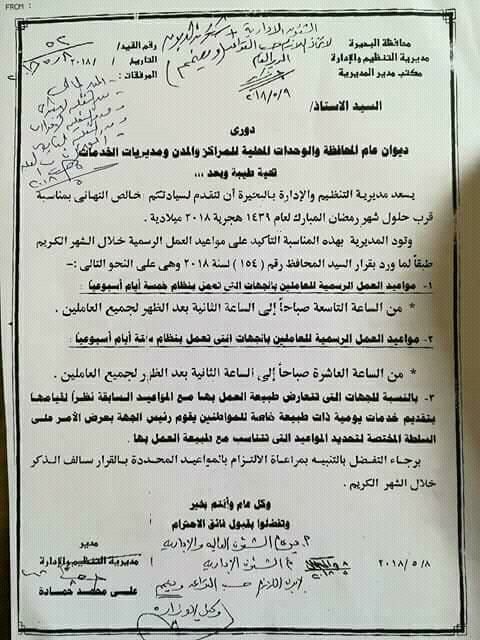 FROM :
محافظة البحيرة
مديرية التنظيم والإدارة
مكتب مدير المديرية
رقم القيد/ ٥٢
التاريخ / /٢٠١٨
المرفقات :
الشئون الإدارية
المدير العام
٢٠١٨/٥/٩
السيد الاستاذ/
دورى
ديوان عام المحافظة والوحدات المحلية للمراكز والمدن ومديريات الخدمات
تحية طيبة وبعد ،،،
يسعد مديرية التنظيم والإدارة بالبحيرة أن تتقدم لسيادتكم بخالص التهانى بمناسبة
قرب حلول شهر رمضان المبارك لعام ١٤٣٩ هجرية ٢٠١٨ ميلادية .
وتود المديرية بهذه المناسبة التأكيد على مواعيد العمل الرسمية خلال الشهر الكريم
طبقاً لما ورد بقرار السيد المحافظ رقم (١٥٤) لسنة ٢٠١٨ وهى على النحو التالى :-
١- مواعيد العمل الرسمية للعاملين بالجهات التى تعمل بنظام خمسة أيام أسبوعياً :
* من الساعة التاسعة صباحاً إلى الساعة الثانية بعد الظهر لجميع العاملين .
٢- مواعيد العمل الرسمية للعاملين بالجهات التى تعمل بنظام ستة أيام أسبوعياً :
* من الساعة العاشرة صباحاً إلى الساعة الثانية بعد الظهر لجميع العاملين .
٣- بالنسبة للجهات التى تتعارض طبيعة العمل بها مع المواعيد السابقة نظراً لقيامها
بتقديم خدمات يومية ذات طبيعة خاصة للمواطنين يقوم رئيس الجهة بعرض الأمر على
السلطة المختصة لتحديد المواعيد التى تتناسب مع طبيعة العمل بها .
برجاء التفضل بالتنبيه بمراعاة الالتزام بالمواعيد المحددة بالقرار سالف الذكر
خلال الشهر الكريم .
وكل عام وأنتم بخير
وتفضلوا بقبول فائق الاحترام
مدير عام الشئون المالية والإدارية
الشئون الإدارية
وكيل الوزارة
٢٠١٨/٥/٨
مدير
مديرية التنظيم والإدارة
على محمد حمادة